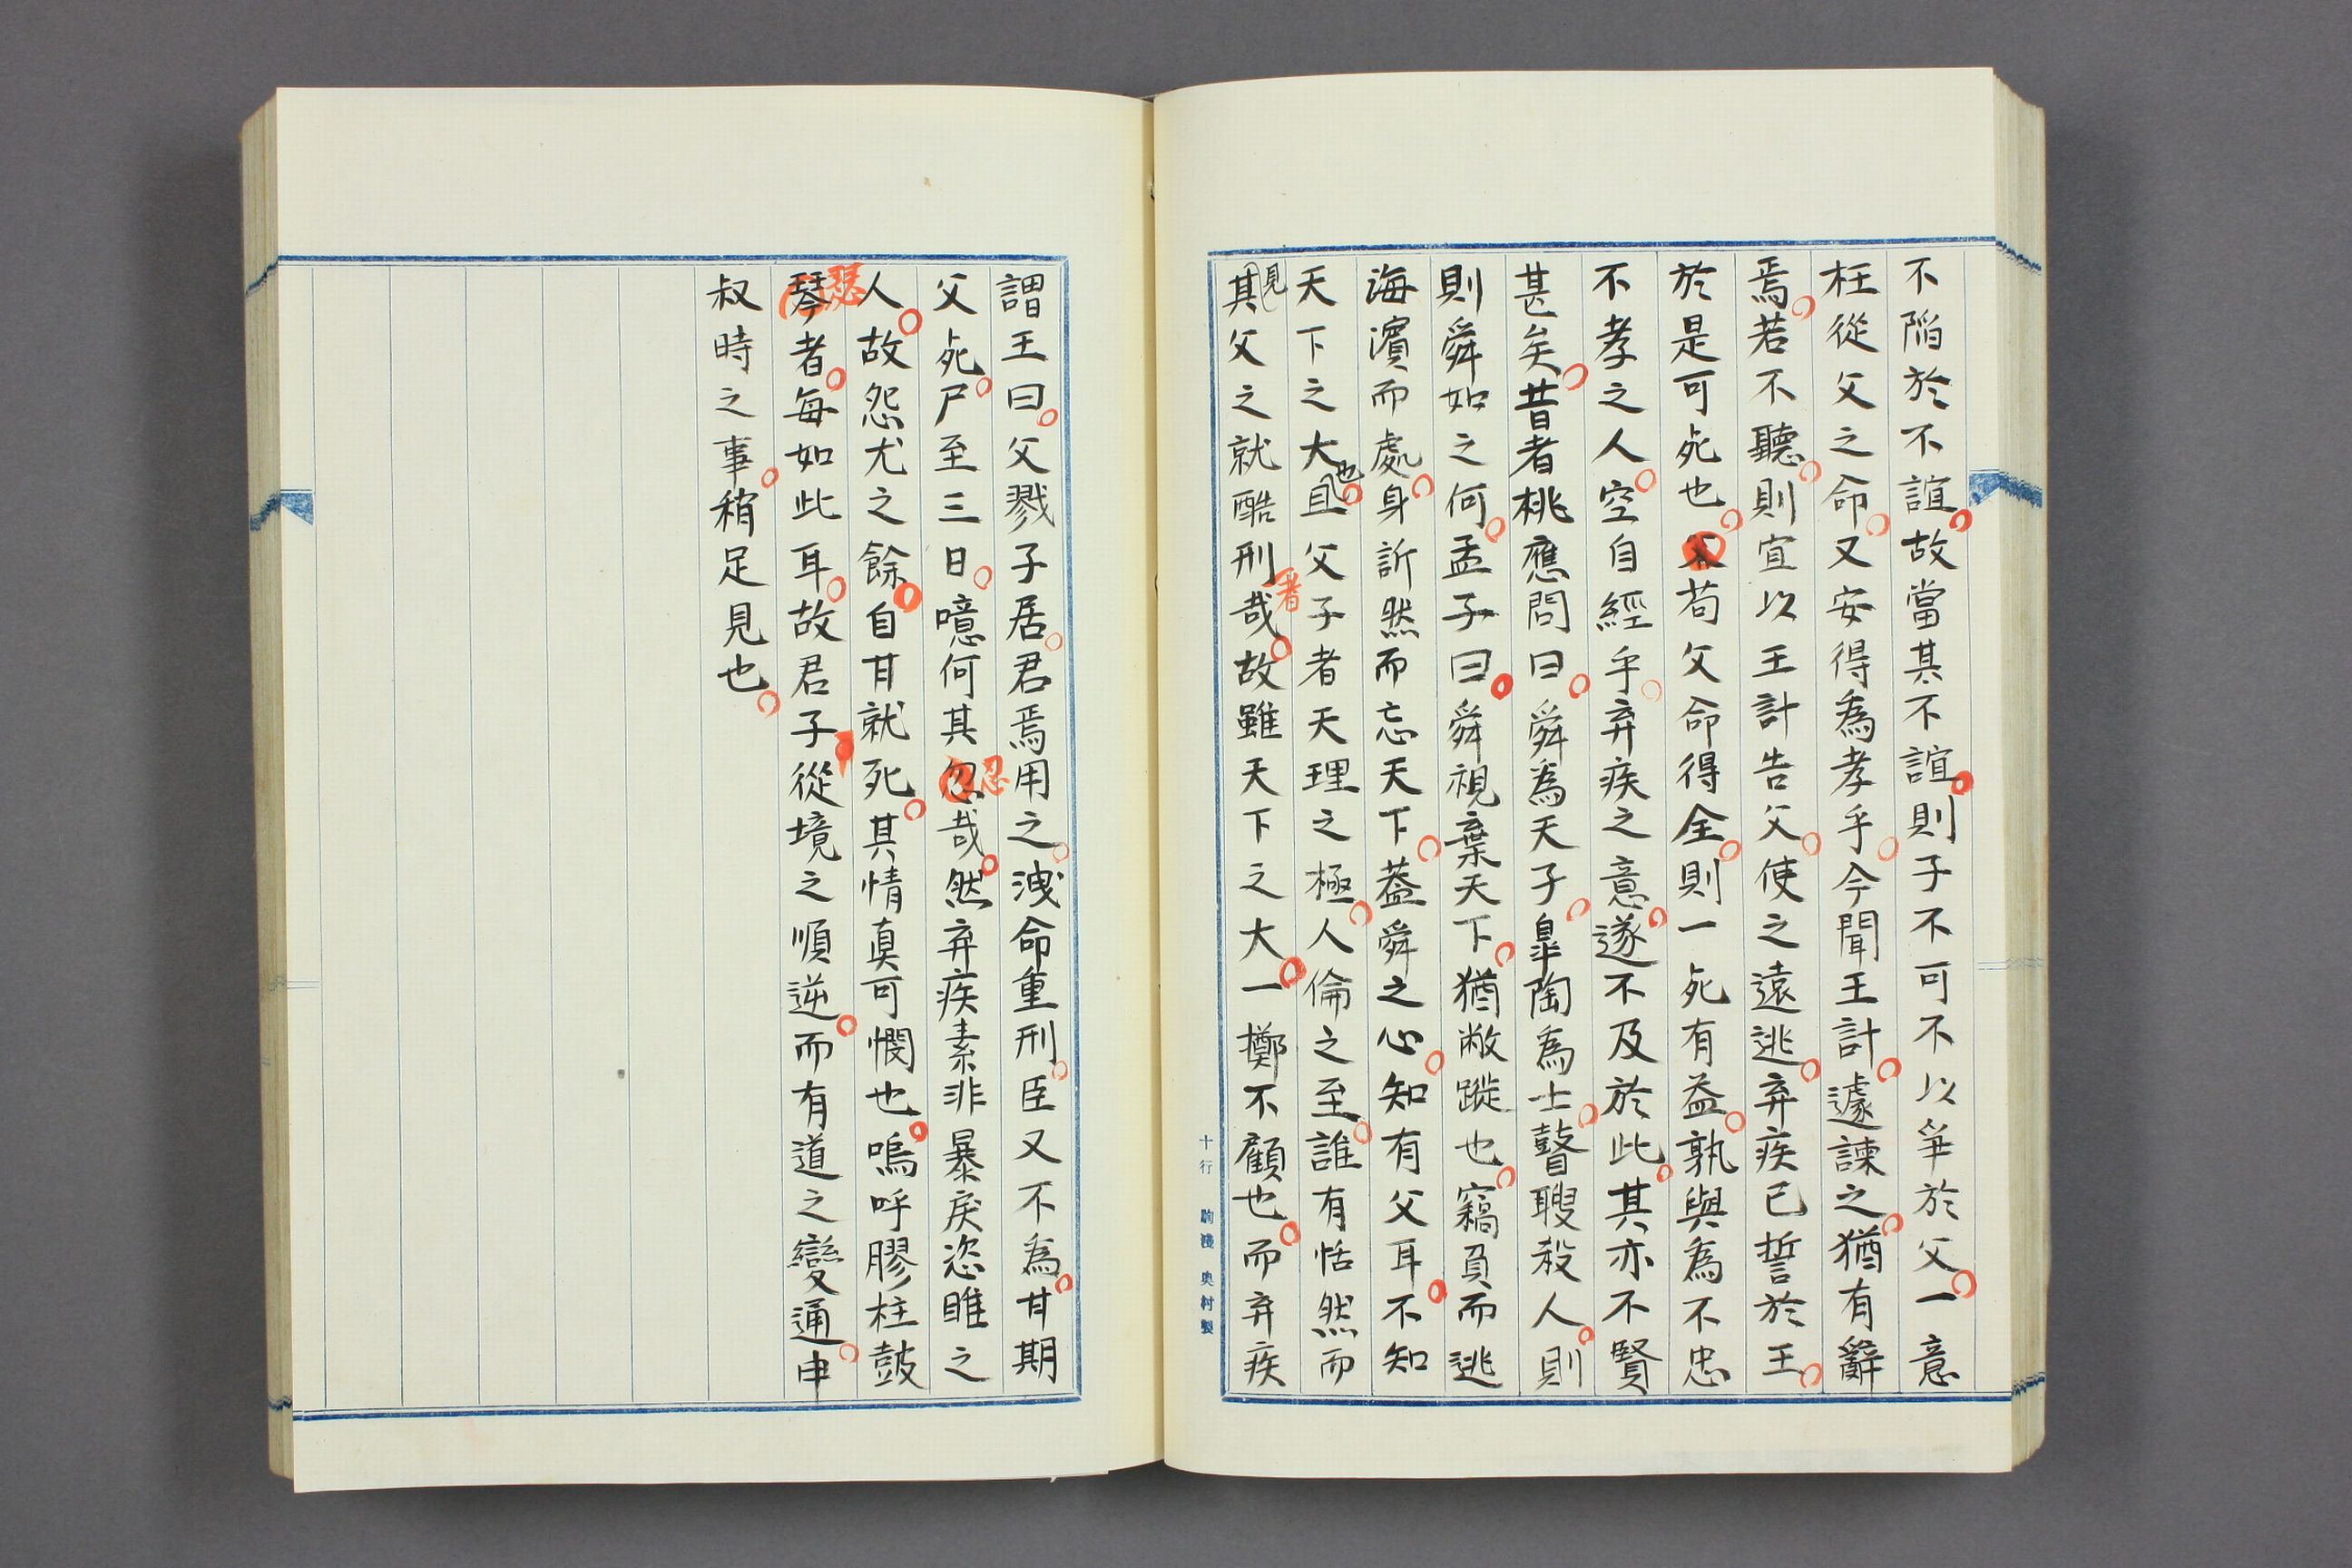 不陷於不誼故當其不誼則子不可不以爭於父一意
枉從父之命又安得為孝乎今聞王計遽諫之猶有辭
焉若不聽則宜以王計告父使之遠逃弃疾已誓於王
於是可死也苟父命得全則一死有益孰與為不忠
不孝之人空自經乎弃疾之意遂不及於此其亦不賢
甚矣昔者桃應問曰舜為天子皐陶為士瞽瞍殺人則
則舜如之何孟子曰舜視棄天下猶敝蹝也竊負而逃
海濱而處身訢然而忘天下蓋舜之心知有父耳不知
天下之大也且父子者天理之極人倫之至誰有恬然而
見其父之就酷刑者哉故雖天下之大一擲不顧也而弃疾
十行 駒淺 奥村製
謂王曰父戮子居君焉用之洩命重刑臣又不為甘期
父死尸至三日噫何其忍哉然弃疾素非暴戻恣睢之
人故怨尤之餘自甘就死其情真可憫也嗚呼膠柱鼓
瑟者每如此耳故君子從境之順逆而有道之變通申
叔時之事稍足見也